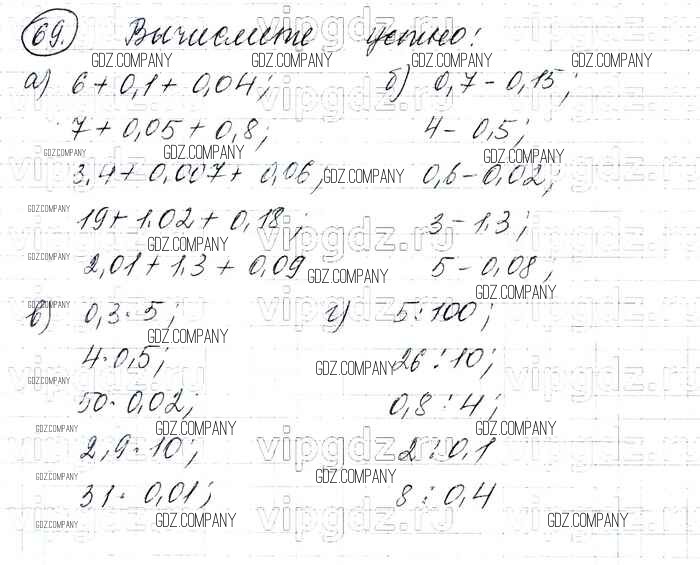 69. Вычислите устно:
а) 6 + 0,1 + 0,04; б) 0,7 - 0,15;
7 + 0,05 + 0,8; 4 - 0,5;
3,4 + 0,007 + 0,06; 0,6 - 0,02;
19 + 1.02 + 0,18; 3 - 1.3;
2,01 + 1,3 + 0,09 5 - 0,08;
в) 0,3 · 5; г) 5 : 100;
4 · 0,5; 26 : 10;
50 · 0,02; 0,8 : 4;
2,9 · 10; 2 : 0,1
31 · 0,01; 8 : 0,4